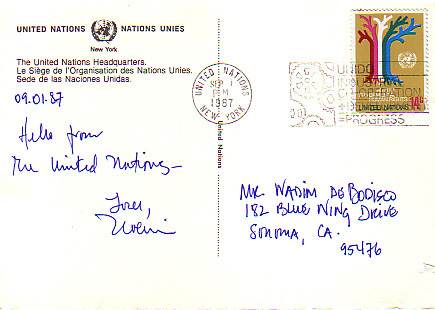 UNITED NATIONS NATIONS UNIES
New York
The United Nations Headquarters.
Le Siège de l'Organisation des Nations Unies.
Sede de las Naciones Unidas.
09.01.87
Hello from
The United Nations –
Love,
UNITED NATIONS
SEP 1
PM
1987
NEW YORK
UNIDO
INDUSTRIAL
COOPERATION
=PROGRESS
14c
UNITED NATIONS
MR. WADIM DE BODISCO
182 BLUE WING DRIVE
SONOMA, CA.
95476